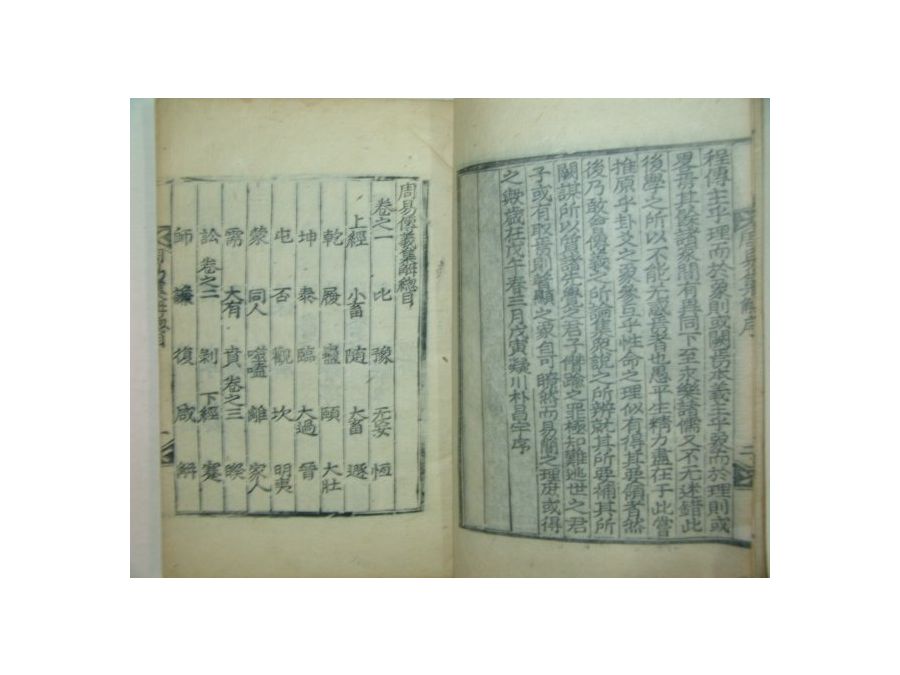 程傳主乎理而於象則或闕焉本義主乎象而於理則或
畧焉其後諸家間有異同下至永樂諸儒又不无迷錯此
後學之所以不能无惑焉者也愚平生精力盡在于此嘗
推原乎卦爻之象參互乎性命之理似有得其要領者然
後乃敢會傳義之所論集衆說之所辨就其所要補其所
闕謀所以質諸先覺之君子僭踰之罪極知難逃世之君
子或有取焉則著顯之象自可瞭然而易簡之理庶或得
之歟歲在戊午春三月戊寅凝川朴昌宇序
周易集解序
二
周易傳義集解總目
卷之一 比 豫 无妄 恒
上經 小畜 隨 大畜 遯
乾 履 蠱 頤 大壯
坤 泰 臨 大過 晉
屯 否 觀 坎 明夷
蒙 同人 噬嗑 離 家人
需 大有 賁 卷之三 睽
訟 卷之二 剝 下經 蹇
師 謙 復 咸 解